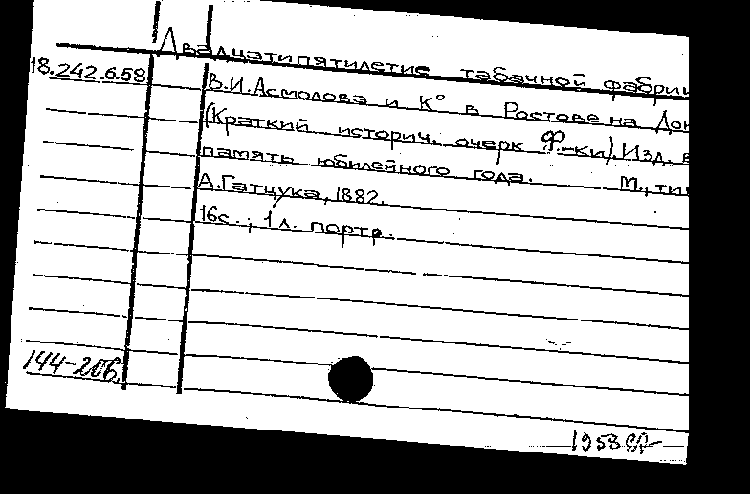 Двадцатипятилетие табачной фабрик
18.242.6.58
В.И.Асмолова и К° в Ростове на Дон
(Краткий историч. очерк Ф-ки). Изд. в
память юбилейного года. М., тип
А.Гатцука, 1882.
16с.; 1л. портр.
144-206.
1953